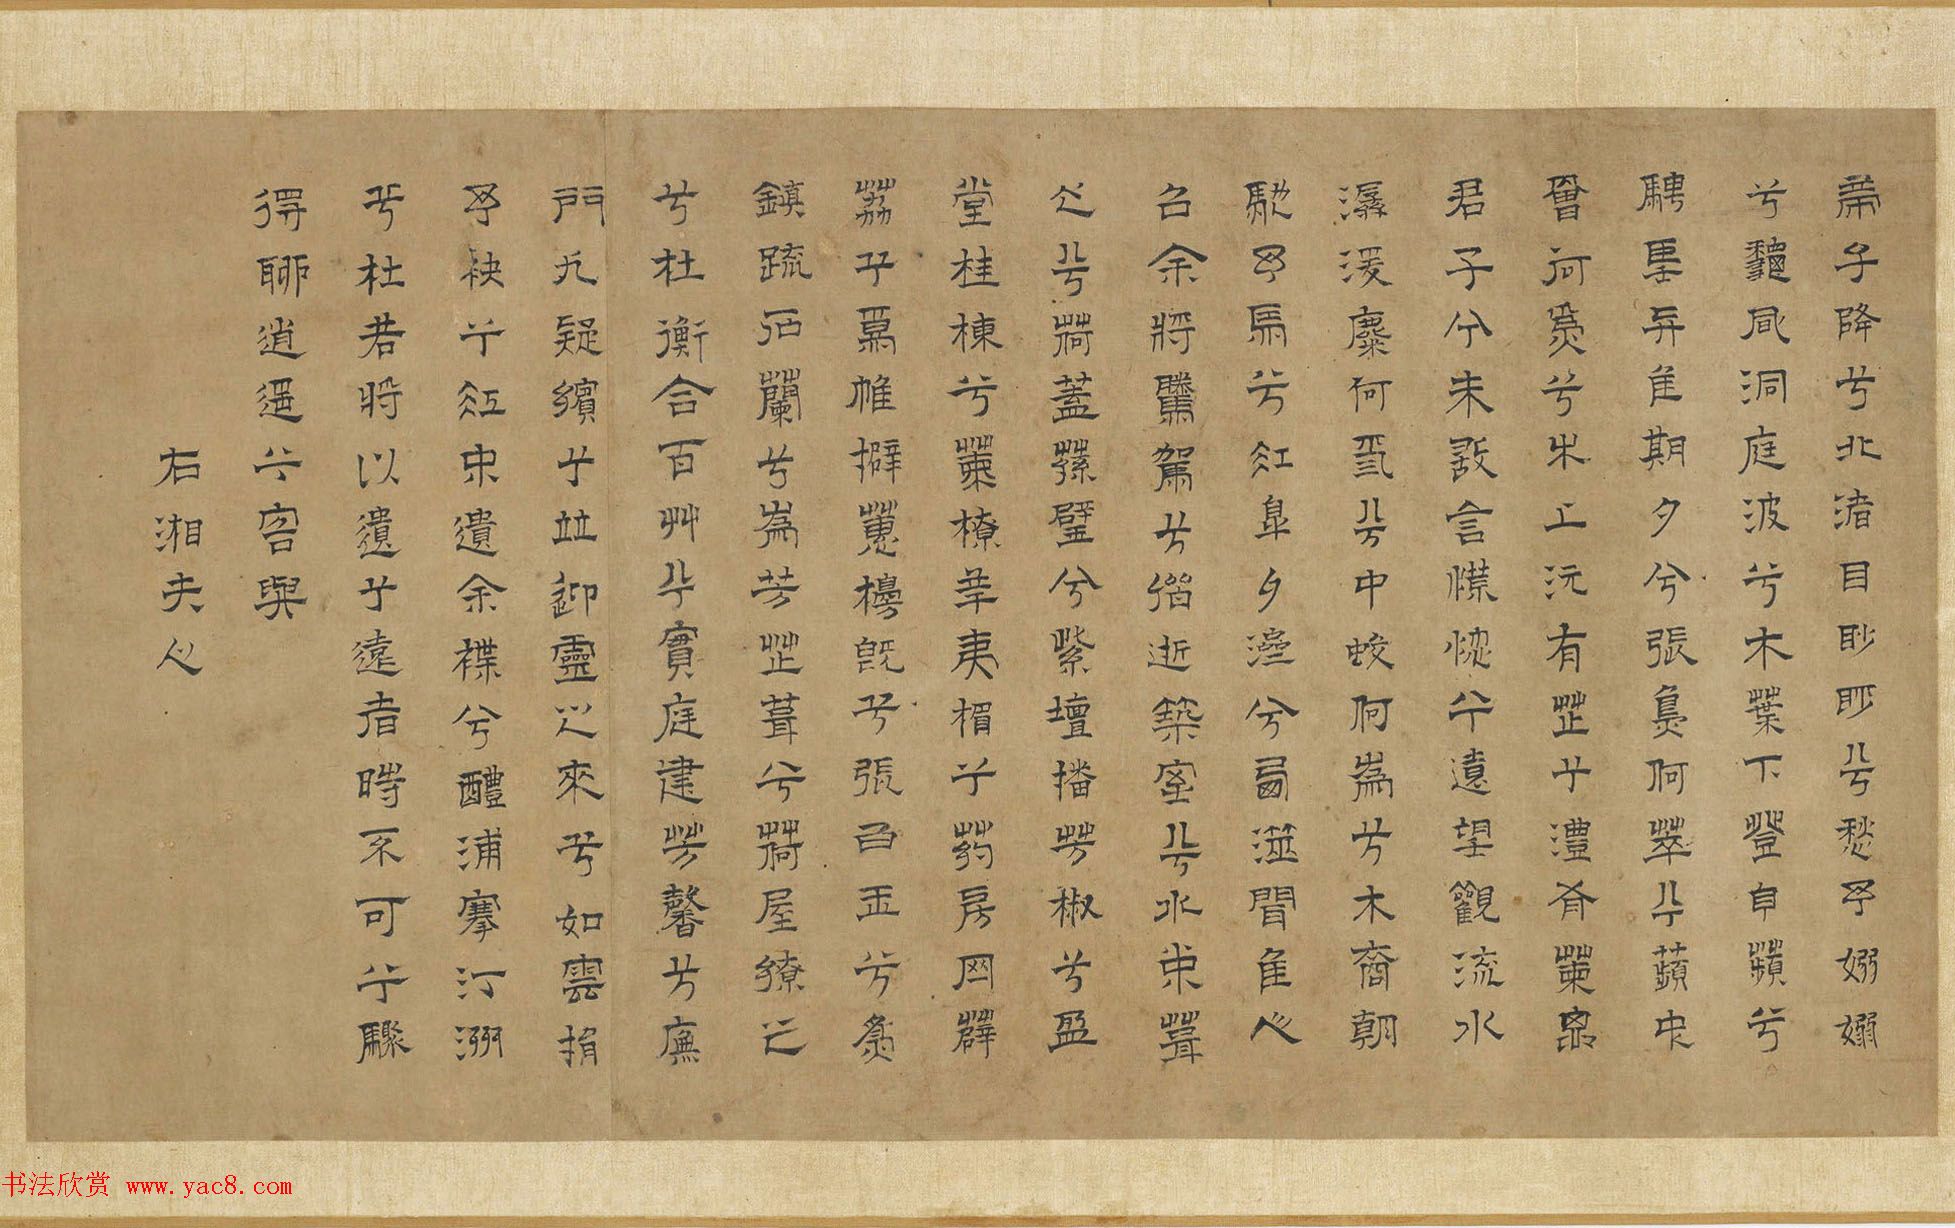 帝子降兮北渚目眇眇兮愁予嫋嫋
兮秋風洞庭波兮木葉下登白薠兮
騁望與佳期夕兮張鳥何萃兮蘋中
罾何爲兮木上沅有芷兮澧有蘭思
君子兮未敢言慌惚兮遠望觀流水
潺湲麋何食兮中蛟何爲兮水裔朝
馳予馬兮江皋夕濟兮西澨聞佳人
召余將騰駕兮偕逝築室兮水中葺
之兮荷蓋蓀壁兮紫壇播芳椒兮盈
堂桂棟兮蘭橑辛夷楣兮葯房罔薜
荔兮爲帷擗蕙櫋既兮張白玉兮爲
鎮疏石蘭兮爲芳芷葺兮荷屋繚之
兮杜衡合百艸兮實庭建芳馨兮廡
門九疑繽兮並迎靈之來兮如雲捐
予袂兮江中遺余褋兮醴浦搴汀洲
兮杜若將以遺兮遠者時不可兮驟
得聊逍遥兮容與
右湘夫人
书法欣赏 www.yac8.com